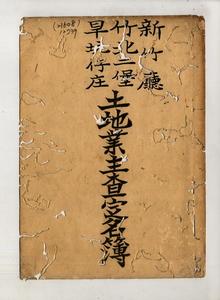 新竹廳
竹北二堡
旱坑仔庄
土地業主查定名簿